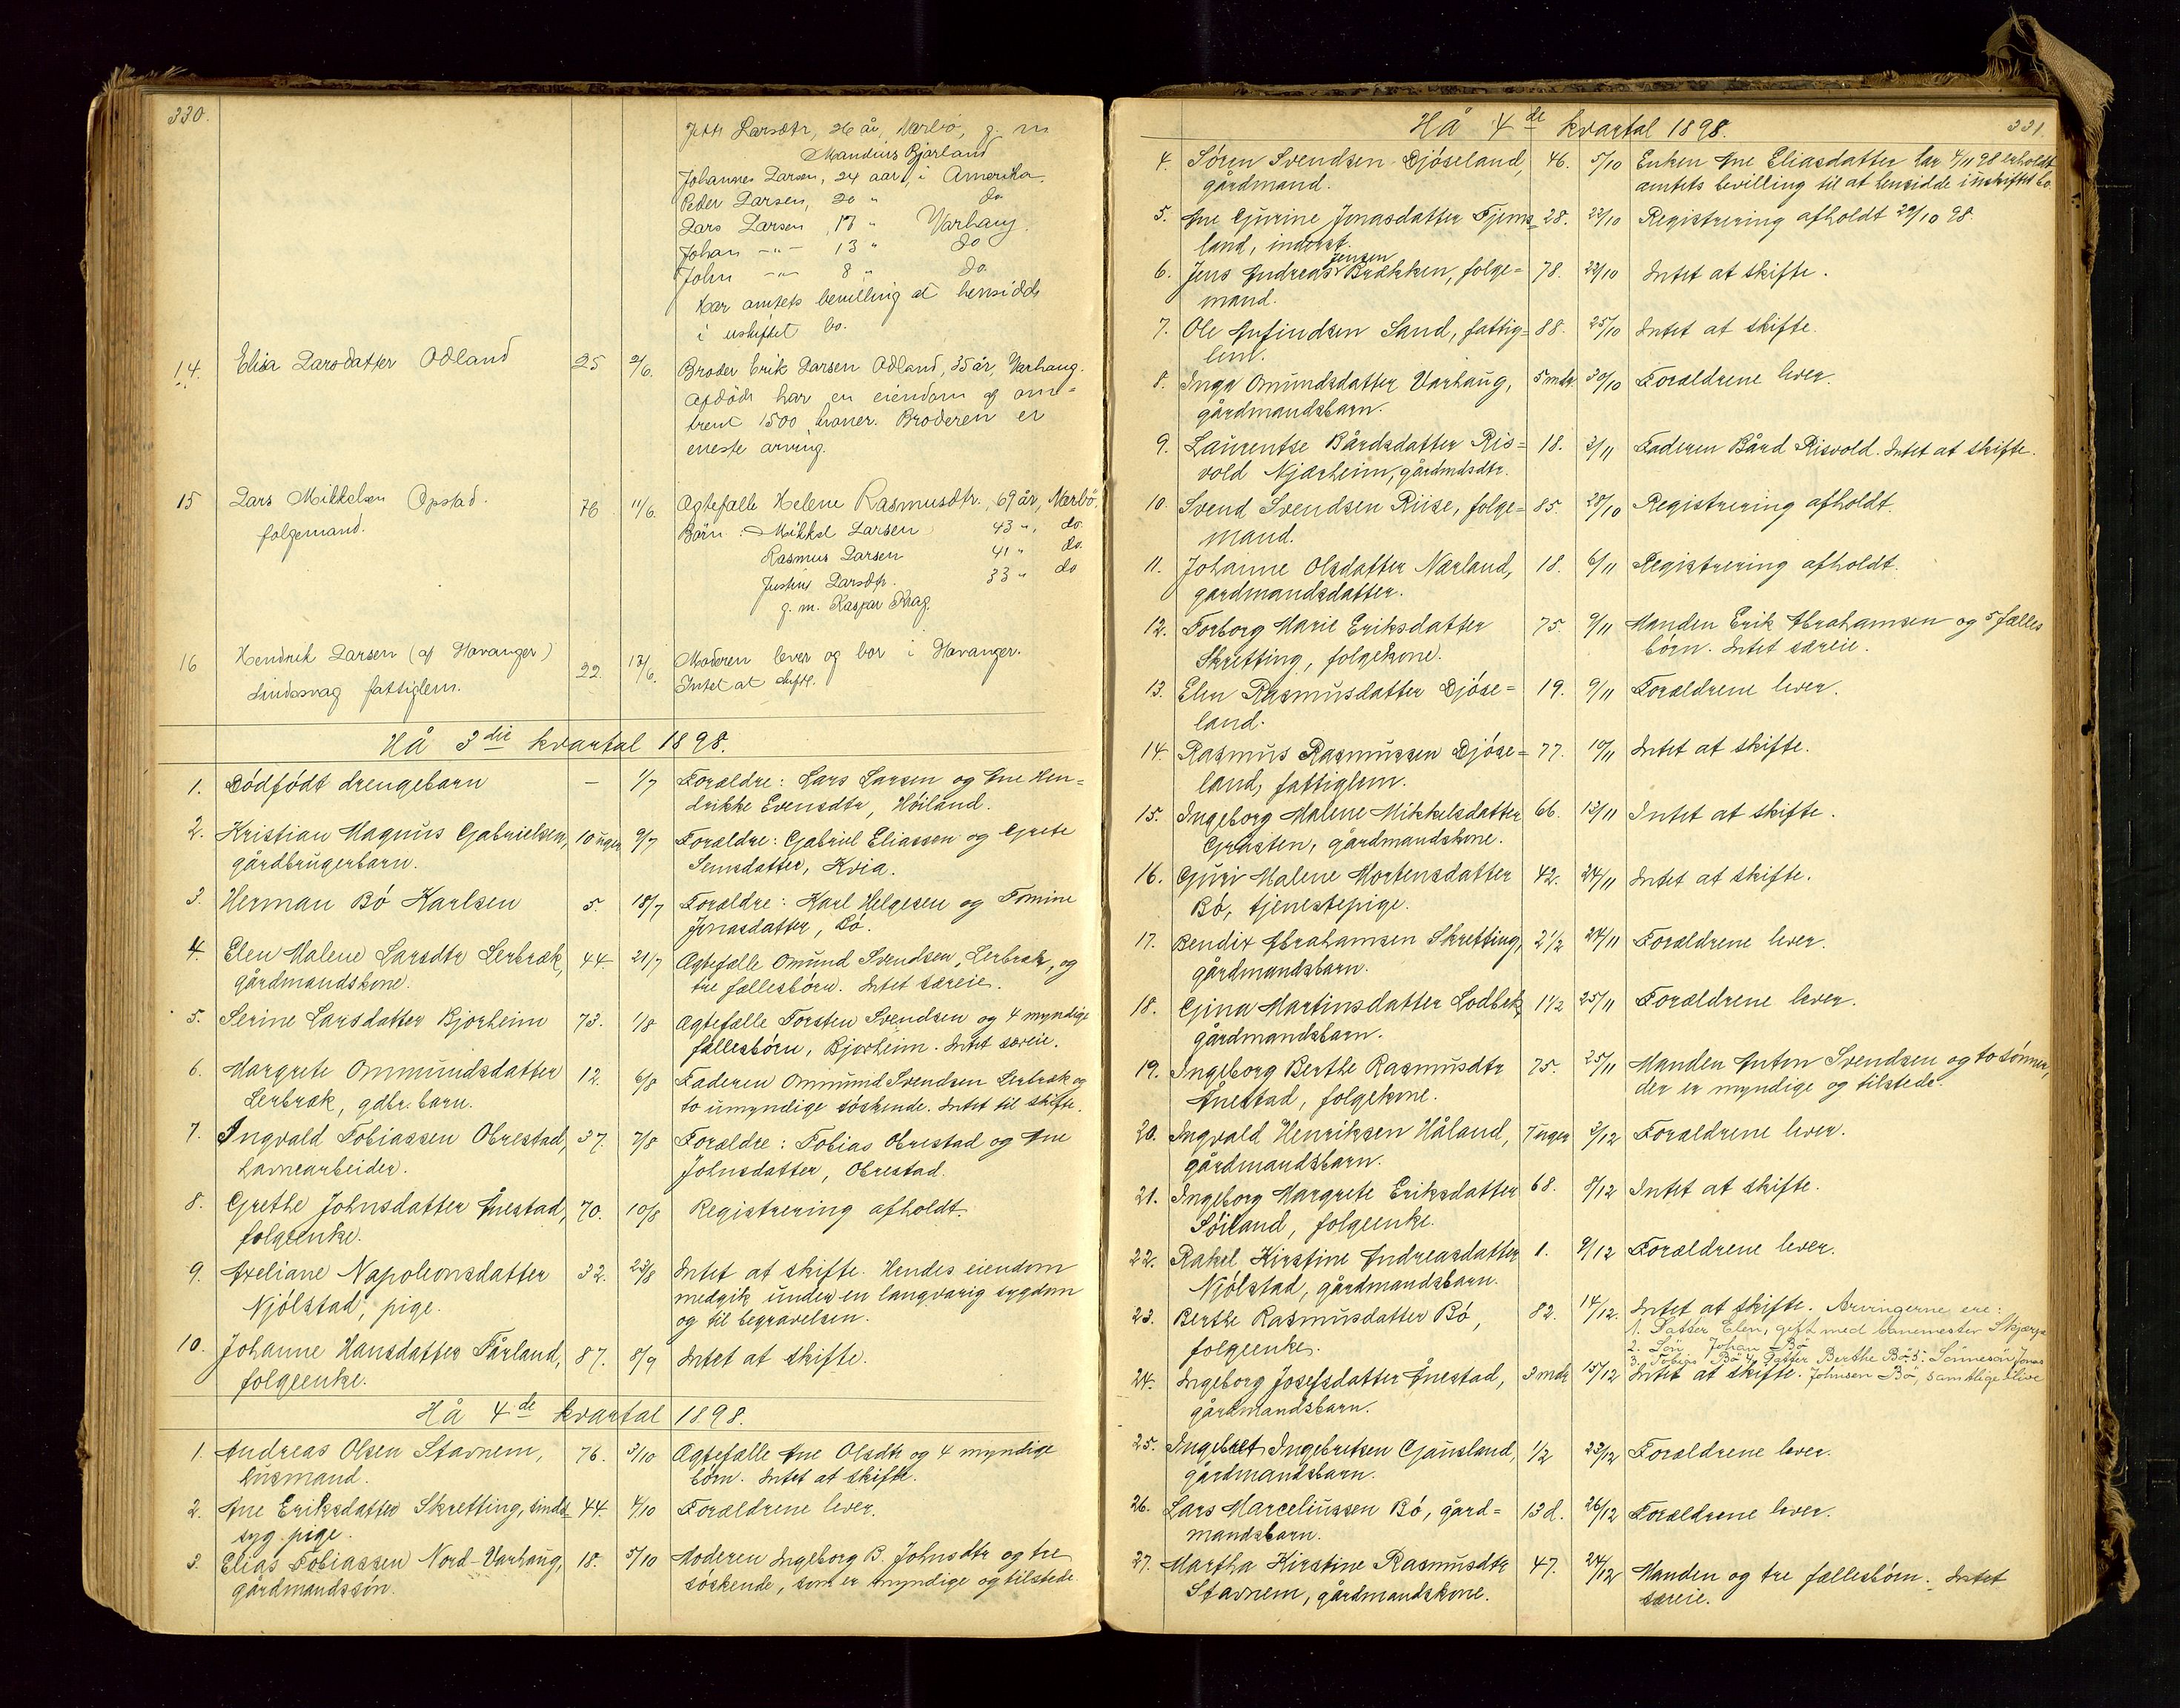 330.
Larsdtr, 26 år, Nærbö, g. m
Mandius Bjorland
Johannes Larsen, 24 aar, i Amerika.
Peder Larsen, 20 " do
Lars Larsen, 17 " Varhaug.
Johan -"- 13 " do
John -"- 8 " do.
Har amtets bevilling at hensidde
i uskiftet bo.
14. Elisa Larsdatter Odland 25 2/6. Broder Erik Larsen Odland, 35 år, Varhaug.
Afdöde har en eiendom af om-
trent 1500 kroner. Broderen er
eneste arving.
15 Lars Mikkelsen Opstad. 76 11/6. Ægtefælle Helene Rasmusdtr., 69 år, Nærbö.
folgemand. Börn: Mikkel Larsen 43 ", do.
Rasmus Larsen 41 " do.
Larsdtr. 33 " do
g. m. Kaspar
16 Hendrik Larsen (af Havanger) 22. 13/6. Moderen lever og bor i Havanger.
fattiglem. Intet at skifte.
Hå 3die kvartal 1898.
1. Dödfödt drengebarn — 1/7 Forældre: Lars Larsen og Ane Hen=
drikke Evensdtr, Höiland.
2. Kristian Magnus Gabrielsen, 10 uger 9/7 Forældre: Gabriel Eliassen og Grete
gårdbrugerbarn. Kvia.
3. Herman Bö Karlsen 5. 18/7 Forældre: Karl Helgesen og Tomine
Jonasdatter, Bö.
4. Elen Malene Larsdtr Lerbræk, 44. 21/7 Ægtefælle Omund Svendsen, Lerbræk, og
gårdmandskone. tre fællesbörn. Intet særeie.
5. Serine Larsdatter Bjorheim 73. 1/8 Ægtefælle Torsten Svendsen og 4 myndige
fællesbörn, Bjorheim. Intet særeie.
6. Margrete Ommundsdatter 12. 6/8 Faderen Ommund Svendsen Lerbræk og
Lerbræk, gdbr. barn. to umyndige söskende. Intet til skifte.
7. Ingvald Tobiassen Obrestad, 37. 7/8 Forældre: Tobias Obrestad og Ane
havnearbeider. Johnsdatter, Obrestad.
8. Grethe Johnsdatter Ånestad, 70. 10/8 Registrering afholdt.
folgeenke.
9. Axeliane Napoleonsdatter 32. 23/8 Intet at skifte. Hendes eiendom
Njölstad, pige. medgik under en langvarig sygdom
og til begravelsen.
10. Johanne Hansdatter Tårland, 87. 8/9 Intet at skifte.
folgeenke.
Hå 4de kvartal 1898.
1. Andreas Olsen Stavnem, 76. 3/10 Ægtefælle Ane Olsdtr og 4 myndige
husmand. börn. Intet at skifte.
2. Ane Eriksdatter Skretting, sinds= 44. 4/10 Forældrene lever.
syg pige.
3. Elias Tobiassen Nord-Varhaug, 18. 5/10 Moderen Ingeborg B. Johnsdtr og tre
gårdmandssön. söskende, som er myndige og tilstede.
Hå 4de kvartal 1898. 331.
4. Sören Svendsen Djöseland, 46. 5/10 Enken Ane Eliasdatter har 4/11 98 erholdt
gårdmand. amtets bevilling til at hensidde i uskiftet bo.
5. Ane Gurine Jonasdatter Tjems= 28. 22/10 Registrering afholdt 29/10 98.
land, inderst.
Jensen
6. Jens Andreas Brækken, folge= 78. 22/10 Intet at skifte.
mand.
7. Ole Anfindsen Sand, fattig= 88. 25/10 Intet at skifte.
lem.
8. Inga Omundsdatter Varhaug, 5 mdr. 30/10 Forældrene lever.
gårdmandsbarn.
9. Laurentse Bårdsdatter Ris= 18. 2/11 Faderen Bård Risvold. Intet at skifte.
vold Njærheim, gårdmdsdtr.
10. Svend Svendsen Riise, folge= 85. 28/10 Registrering afholdt.
mand.
11. Johanne Olsdatter Nærland, 18. 6/11 Registrering afholdt.
gardmandsdatter.
12. Torborg Marie Eriksdatter 75. 9/11 Manden Erik Abrahamsen og 5 fælles
Skretting, folgekone. börn. Intet særeie.
13. Elen Rasmusdatter Djöse= 19. 9/11 Forældrene lever.
land.
14. Rasmus Rasmussen Djöse= 77. 10/11 Intet at skifte.
land, fattiglem.
15. Ingeborg Malene Mikkelsdatter 66. 13/11 Intet at skifte.
Grusten, gårdmandskone.
16. Guri Malene Mortensdatter 42. 24/11 Intet at skifte.
Bö, tjenestepige.
17. Bendix Abrahamsen Skretting, 2 1/2 24/11 Forældrene lever.
gårdmandsbarn.
18. Gina Martinsdatter Lodbek, 1 1/2 25/11 Forældrene lever.
gårdmandsbarn.
19. Ingeborg Berthe Rasmusdtr 75. 25/11 Manden Anton Svendsen og to sönner,
Ånestad, folgekone. der er myndige og tilstede.
20. Ingvald Henriksen Håland, 7 uger 3/12 Forældrene lever.
gårdmandsbarn.
21. Ingeborg Margrete Eriksdatter 68. 8/12 Intet at skifte.
Söiland, folgeenke.
22. Rakel Kirstine Andreasdatter 1. 9/12 Forældrene lever.
Njölstad, gårdmandsbarn.
23. Berthe Rasmusdatter Bö, 82. 14/12. Intet at skifte. Arvingerne ere:
folgeenke. 1. Datter Elen, gift med banemester
2. Sön Johan Bö
3. Tobias Bö 4. Datter Berthe Bö 5. Sönnesön Jonas
24. Ingeborg Josefsdatter Ånestad, 3 mdr 15/12 Intet at skifte. Johnsen Bö, samtlige ilive
gårdmandsbarn.
25. Ingebret Ingebretsen Gausland, 1/2 23/12 Forældrene lever.
gårdmandsbarn.
26. Lars Marceliussen Bö, gård= 13 d. 26/12 Forældrene lever.
mandsbarn.
27. Martha Kirstine Rasmusdtr 47. 24/12 Manden og tre fællesbörn. Intet
Stavnem, gårdmandskone. særeie.